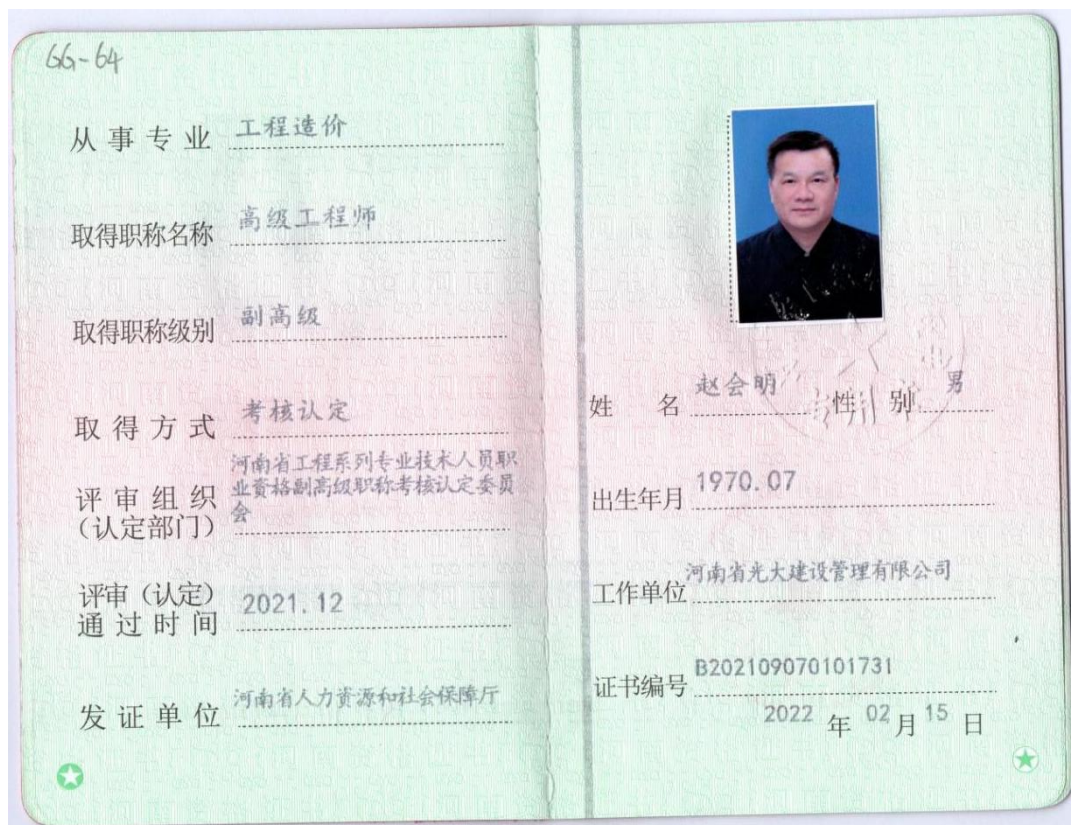 GG-64
从事专业 工程造价
取得职称名称 高级工程师
取得职称级别 副高级
取得方式 考核认定
评审组织
（认定部门）
河南省工程系列专业技术人员职
业资格副高级职称考核认定委员
会
评审（认定）
通过时间
2021.12
发证单位 河南省人力资源和社会保障厅
姓名 赵会明 性别 男
出生年月 1970.07
工作单位 河南省光大建设管理有限公司
证书编号 B202109070101731
2022 年 02 月 15 日